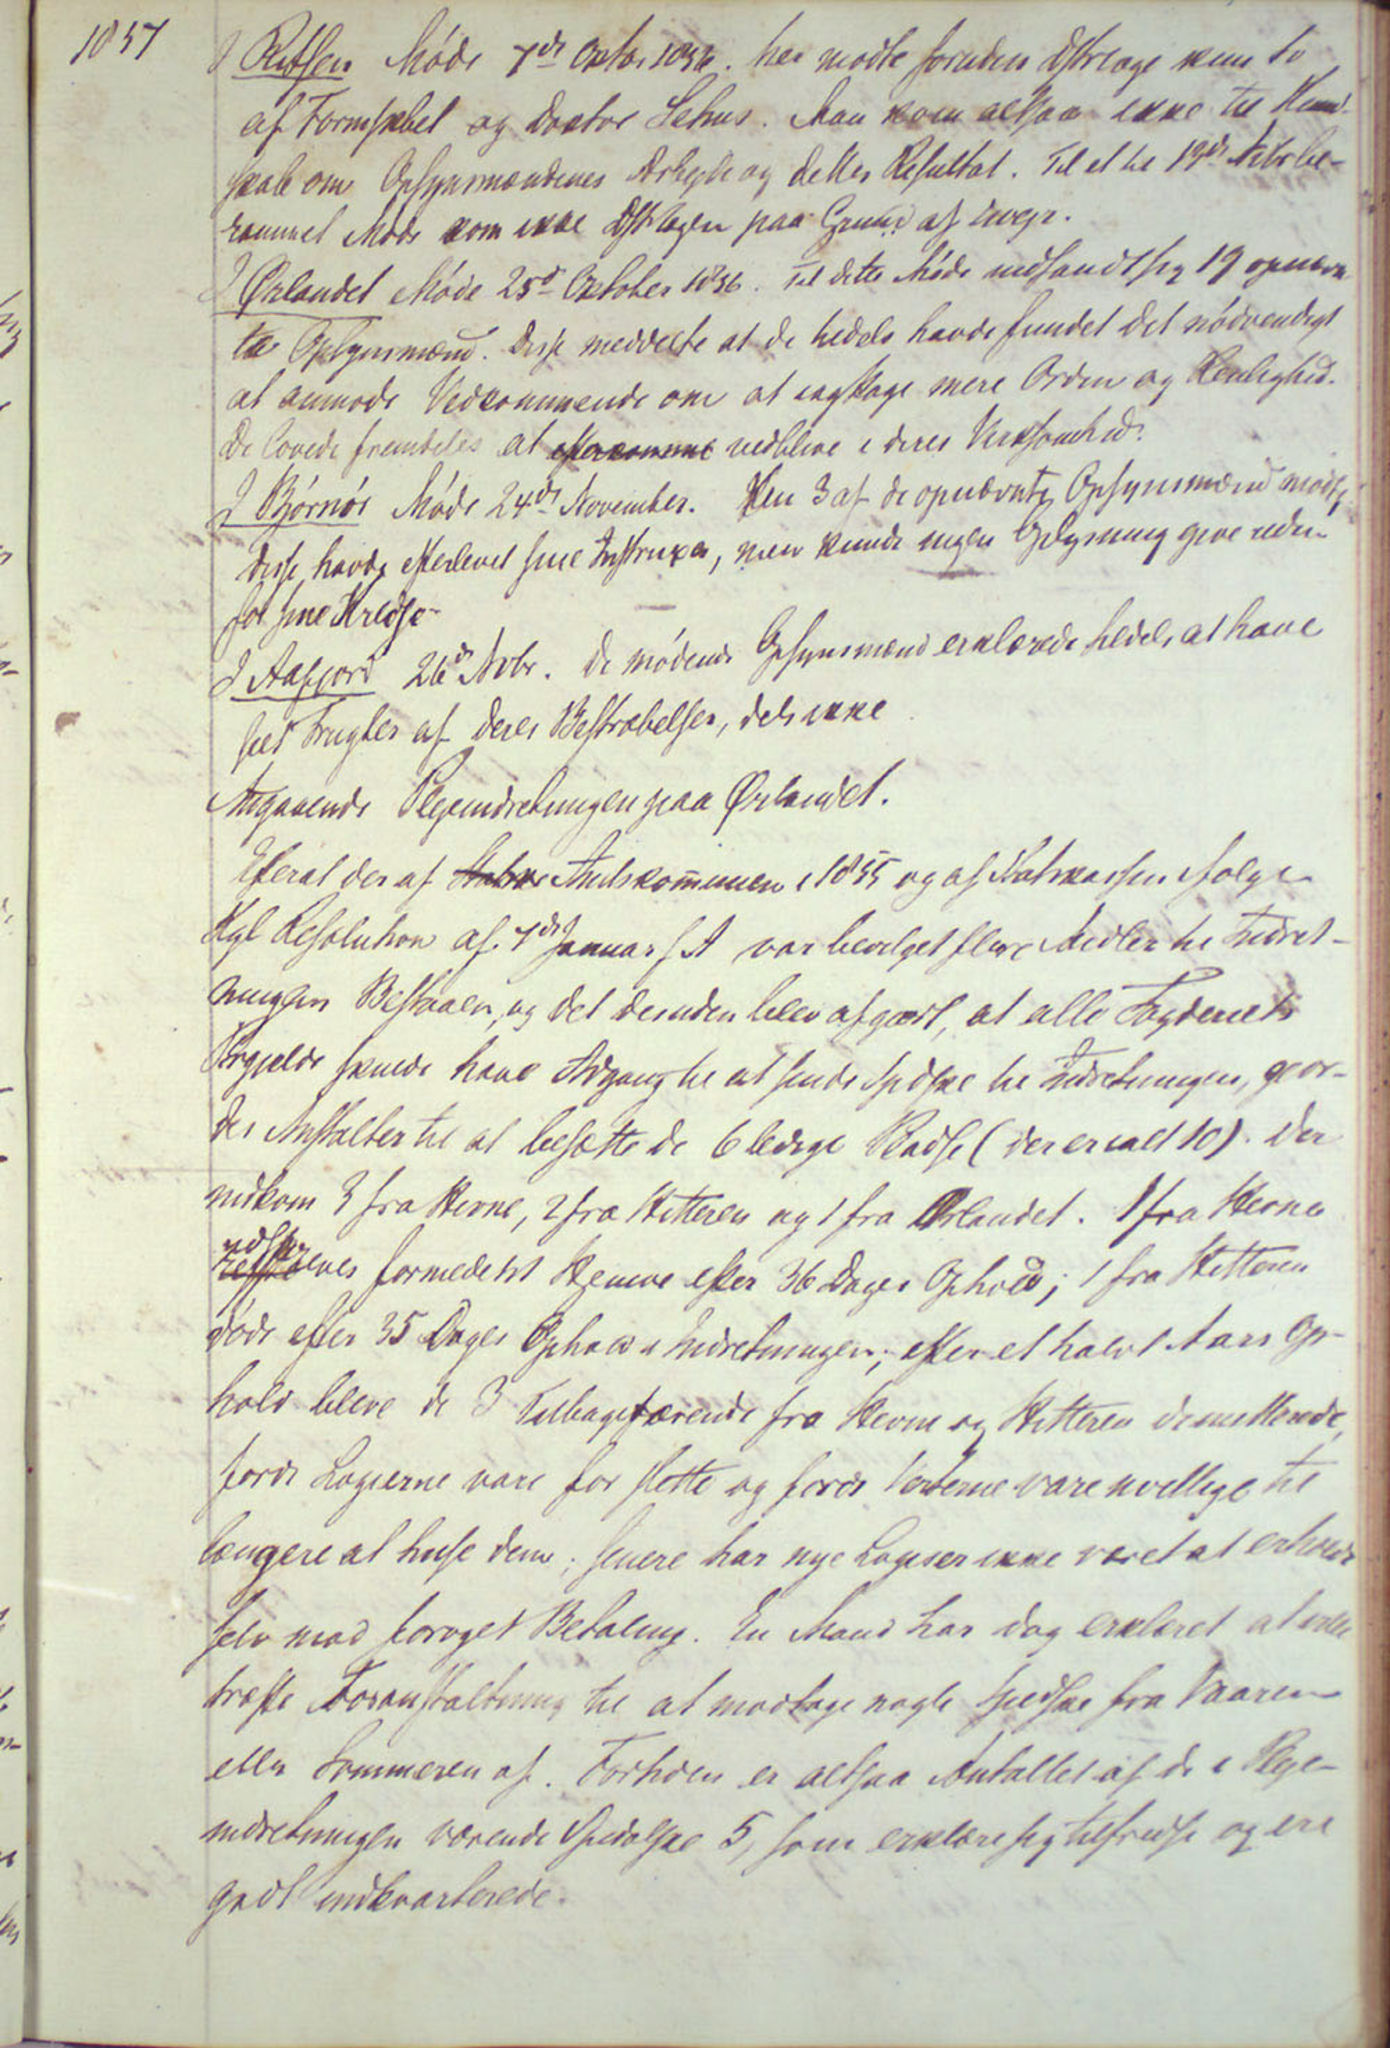 1857
I Ritsen Møde 7de Oktbr 1856. her mødte foruden Dstrlæge kun to
af Formskbet og Doktor Sehus. Man kom altsaa ikke til Kund-
skab om Opsynsmændenes Arbejde og dettes Resultat. Til et til 19de Novbr be-
rammet Møde kom ikke Dstrlægen paa Grund af
I Ørlandet Møde 25de Oktober 1856. Til dette Møde indfandt sig 19 opnævn
te Opsynsmænd. Disse meddelte at de tildels havde fundet det nødvendigt
at anmode Vedkommende om at iagttage mere Orden og Renlighed.
De lovede fremdeles at efterkomme vedblive i deres Virksomhed.
I Bjørnør Møde 24de November. Kun 3 af de opnævnte Opsynsmænd mødte,
disse havde efterlevet sine Instruxer, men kunde ingen Oplysning give uden
for sine Kredse
I Aafjord 26de Novbr. De mødende Opsynsmænd erklærede tildels at have
seet Frugter af deres Bestræbelser, dels ikke
Angaaende Plejeindretningen paa Ørlandet.
Efterat der af Statsk Amtskommunen i 1855 og af Statskassen ifølge
Kgl Resolution af 7de Januar s A var bevilget flere Midler til Indret-
ningens Bestaaen, og det desuden blev afgjort, at alle Fogderiets
Prgjelde skulde have Adgang til at sende Spdske til Indretningen, gjor-
des Anstalter til at besætte de 6 ledige Pladse (der er ialt 10). Der
indkom 3 fra Hevne, 2 fra Hitteren og 1 fra Ørlandet. 1 fra Hevne
udskr
eves formedelst efter 36 Dages Ophold; 1 fra Hitteren
døde efter 35 Dages Ophold i Indretningen; efter et halvt Aars Op-
hold bleve de 3 Tilbageværende fra Hevne og Hitteren demitterede,
fordi Logierne vare for slette og fordi Verterne vare uvillige til
længere at huse dem; senere har nye Logiser ikke været at erholde
selv mod forøget Betaling. En Mand har dog erklæret at ville
træffe Foranstaltning til at modtage nogle Spedske fra Vaaren
eller Sommeren af. Forhden er altsaa Antallet af de i Pleje-
indretningen værende Spedalske 5, som erklære sig tilfredse og ere
godt indkvarterede.